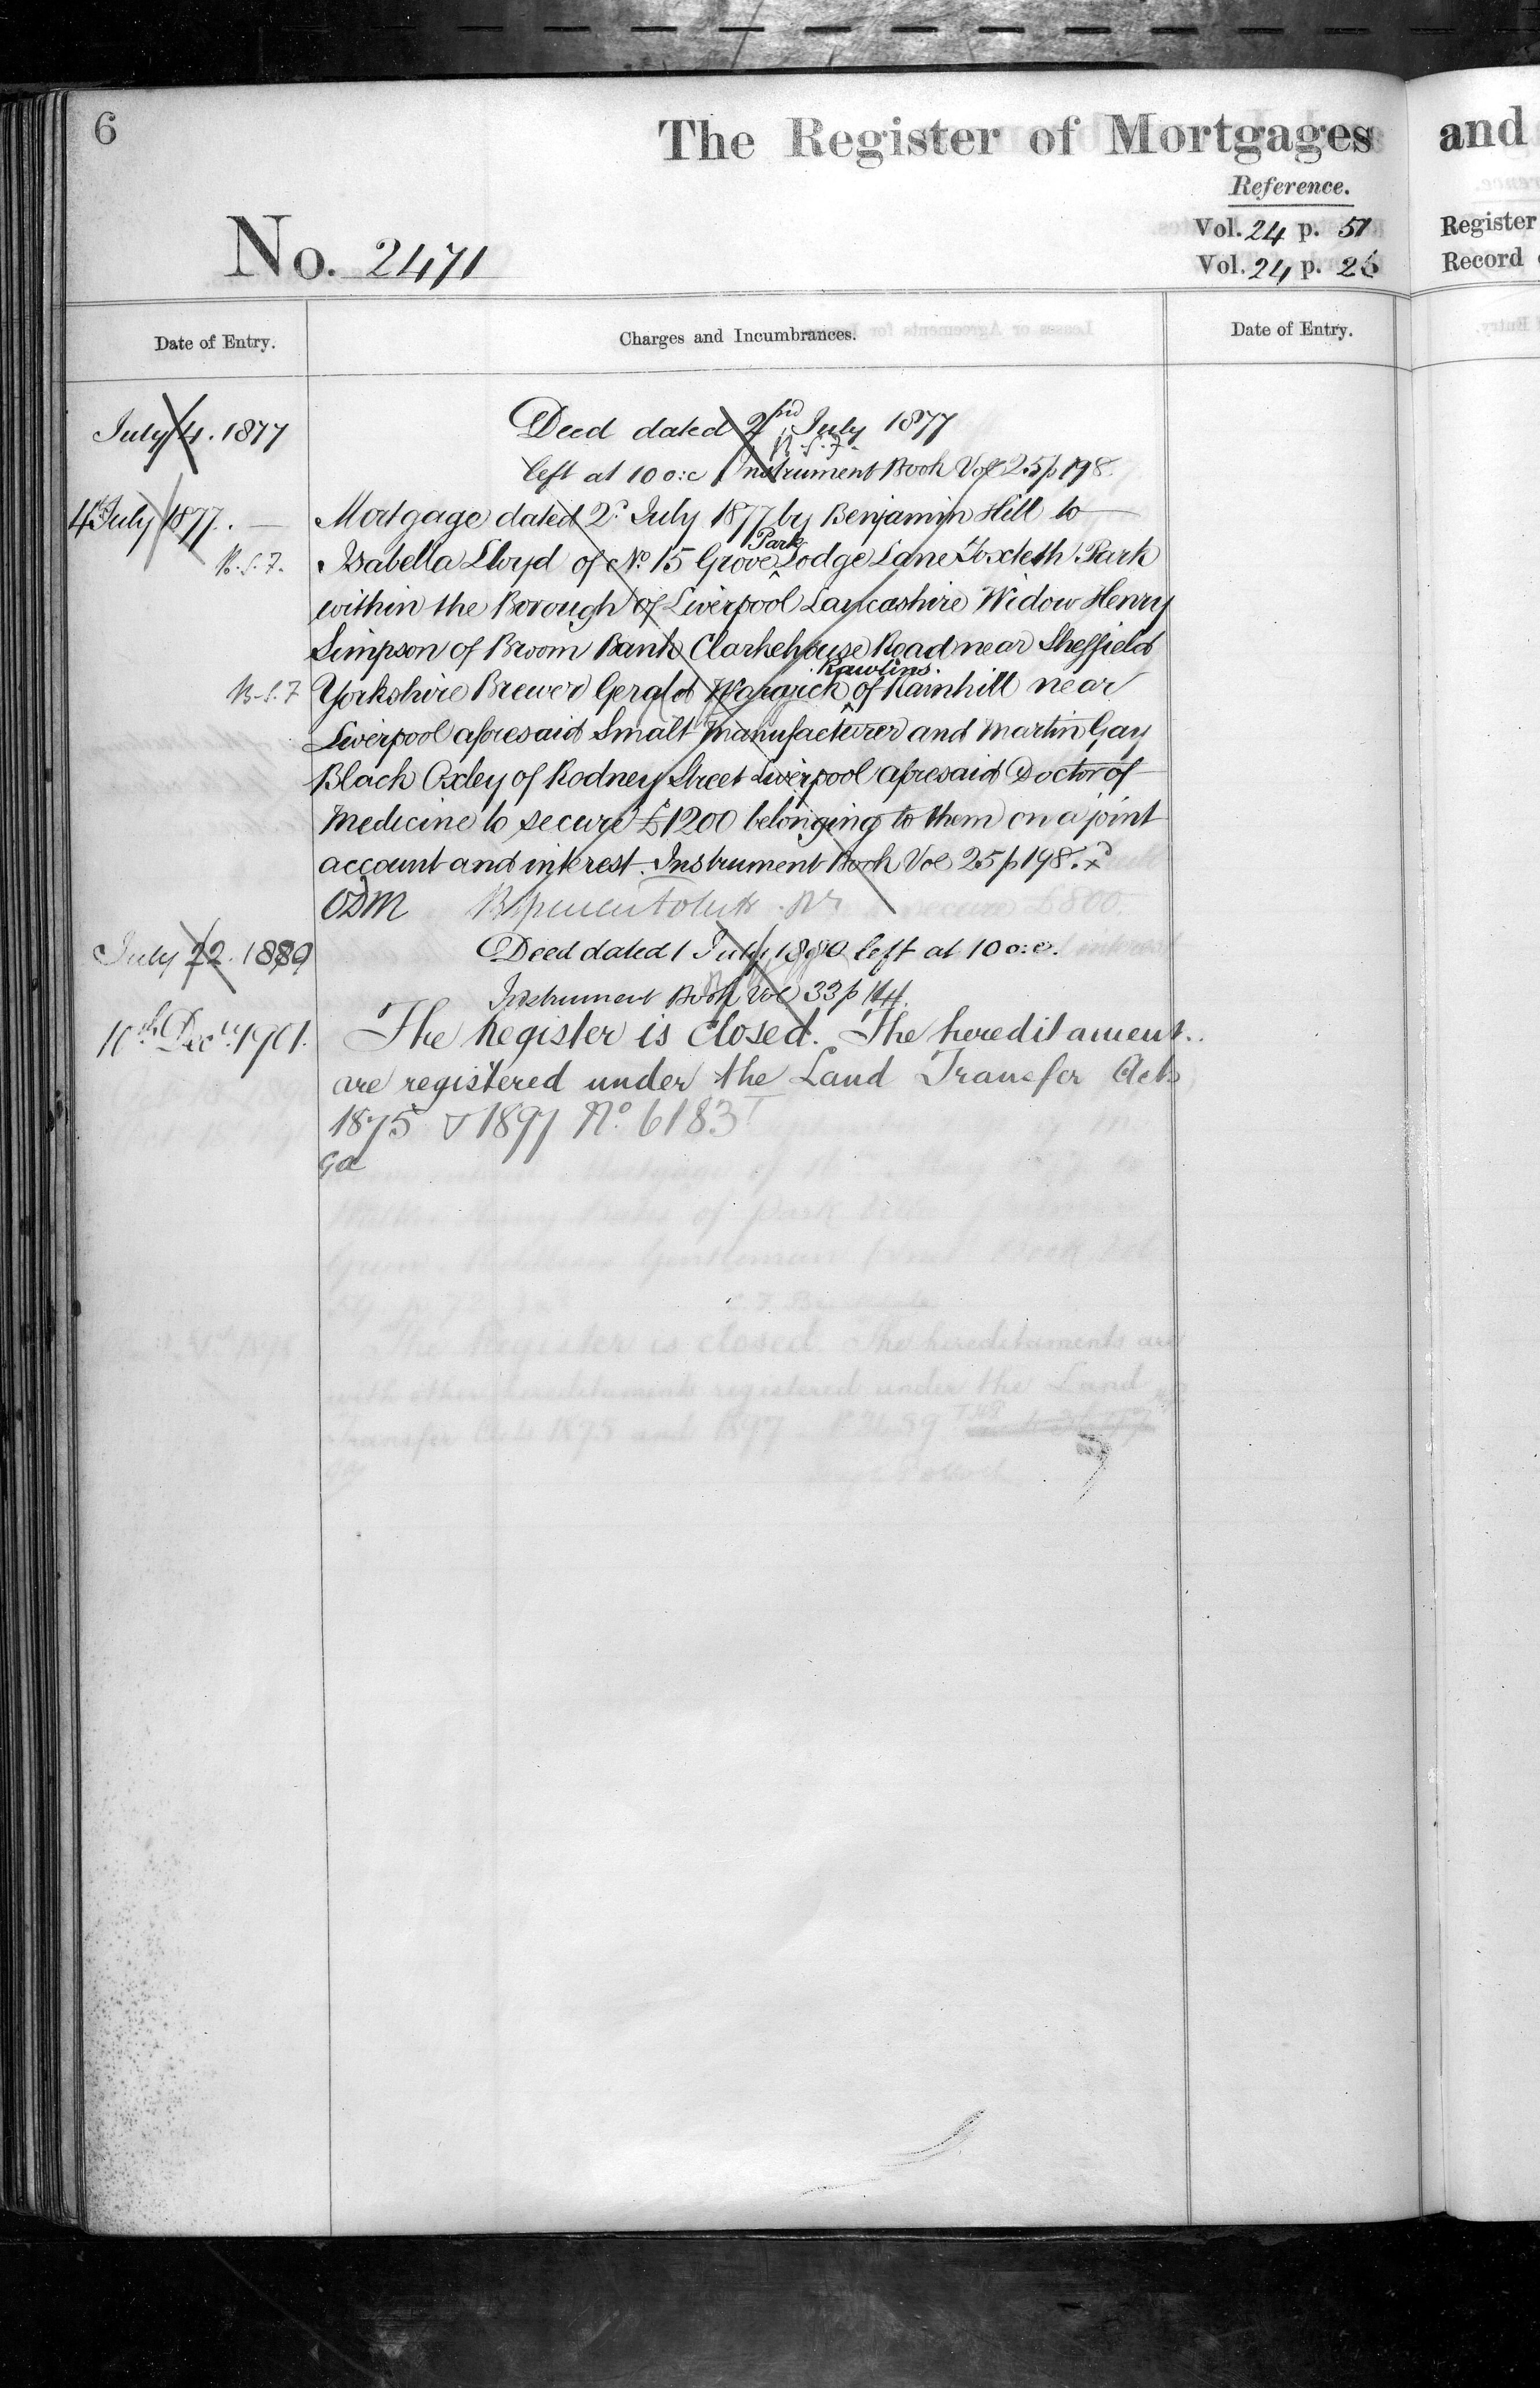 6
The Register of Mortgages
and
Reference.
No. 2471
Vol. 24 p. 51
Vol. 24 p. 26
Register
Record
Date of Entry.
Charges and Incumbrances.
Date of Entry.
July 4. 1877
Deed dated 2nd July 1877
B.S.F.
left at 10 o:c Instrument Book Vol 25 p 198.
4th July 1877. —
Mortgage dated 2d July 1877 by Benjamin Hill to
Park
B.S.F.
Isabella Lloyd of No 15 Grove Lodge Lane Toxteth Park
within the Borough of Liverpool Lancashire Widow Henry
Simpson of Broom Bank Clarkehouse Road near Sheffield
Rawlins.
B.S.F
Yorkshire Brewer Gerald of Rainhill near
Liverpool aforesaid Smalt Manufacturer and Martin Gay
Black Oxley of Rodney Street Liverpool aforesaid Doctor of
Medicine to secure £1200 belonging to them on a joint
account and interest. Instrument Book Vol 25 p 198.
ODM
July 22. 1880
Deed dated 1 July 1880 left at 10 o:c.
Instrument Book Vol 33 p 144.
10th Decr 1901.
The Register is closed. The hereditament..
are registered under the Land Transfer Acts
1875 & 1897 No. 6183
ga